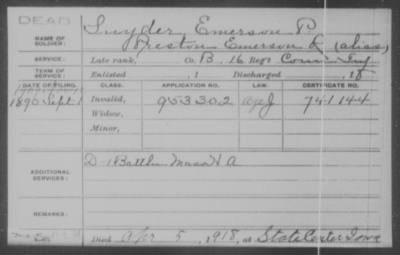 DEAD
NAME OF SOLDIER: Snyder Emerson P
Preston Emerson R (alias)
SERVICE: Late rank, Co. B, 16 Reg't Conn Inf
TERM OF SERVICE: Enlisted , 1 Discharged , 18
DATE OF FILING. CLASS. APPLICATION NO. LAW. CERTIFICATE NO.
1890 Sept 1 Invalid, 953302 741144
Widow,
Minor,
ADDITIONAL SERVICES: D 1 Battln Mass H A
REMARKS:
Died Apr 5, 1918, at State Center Iowa